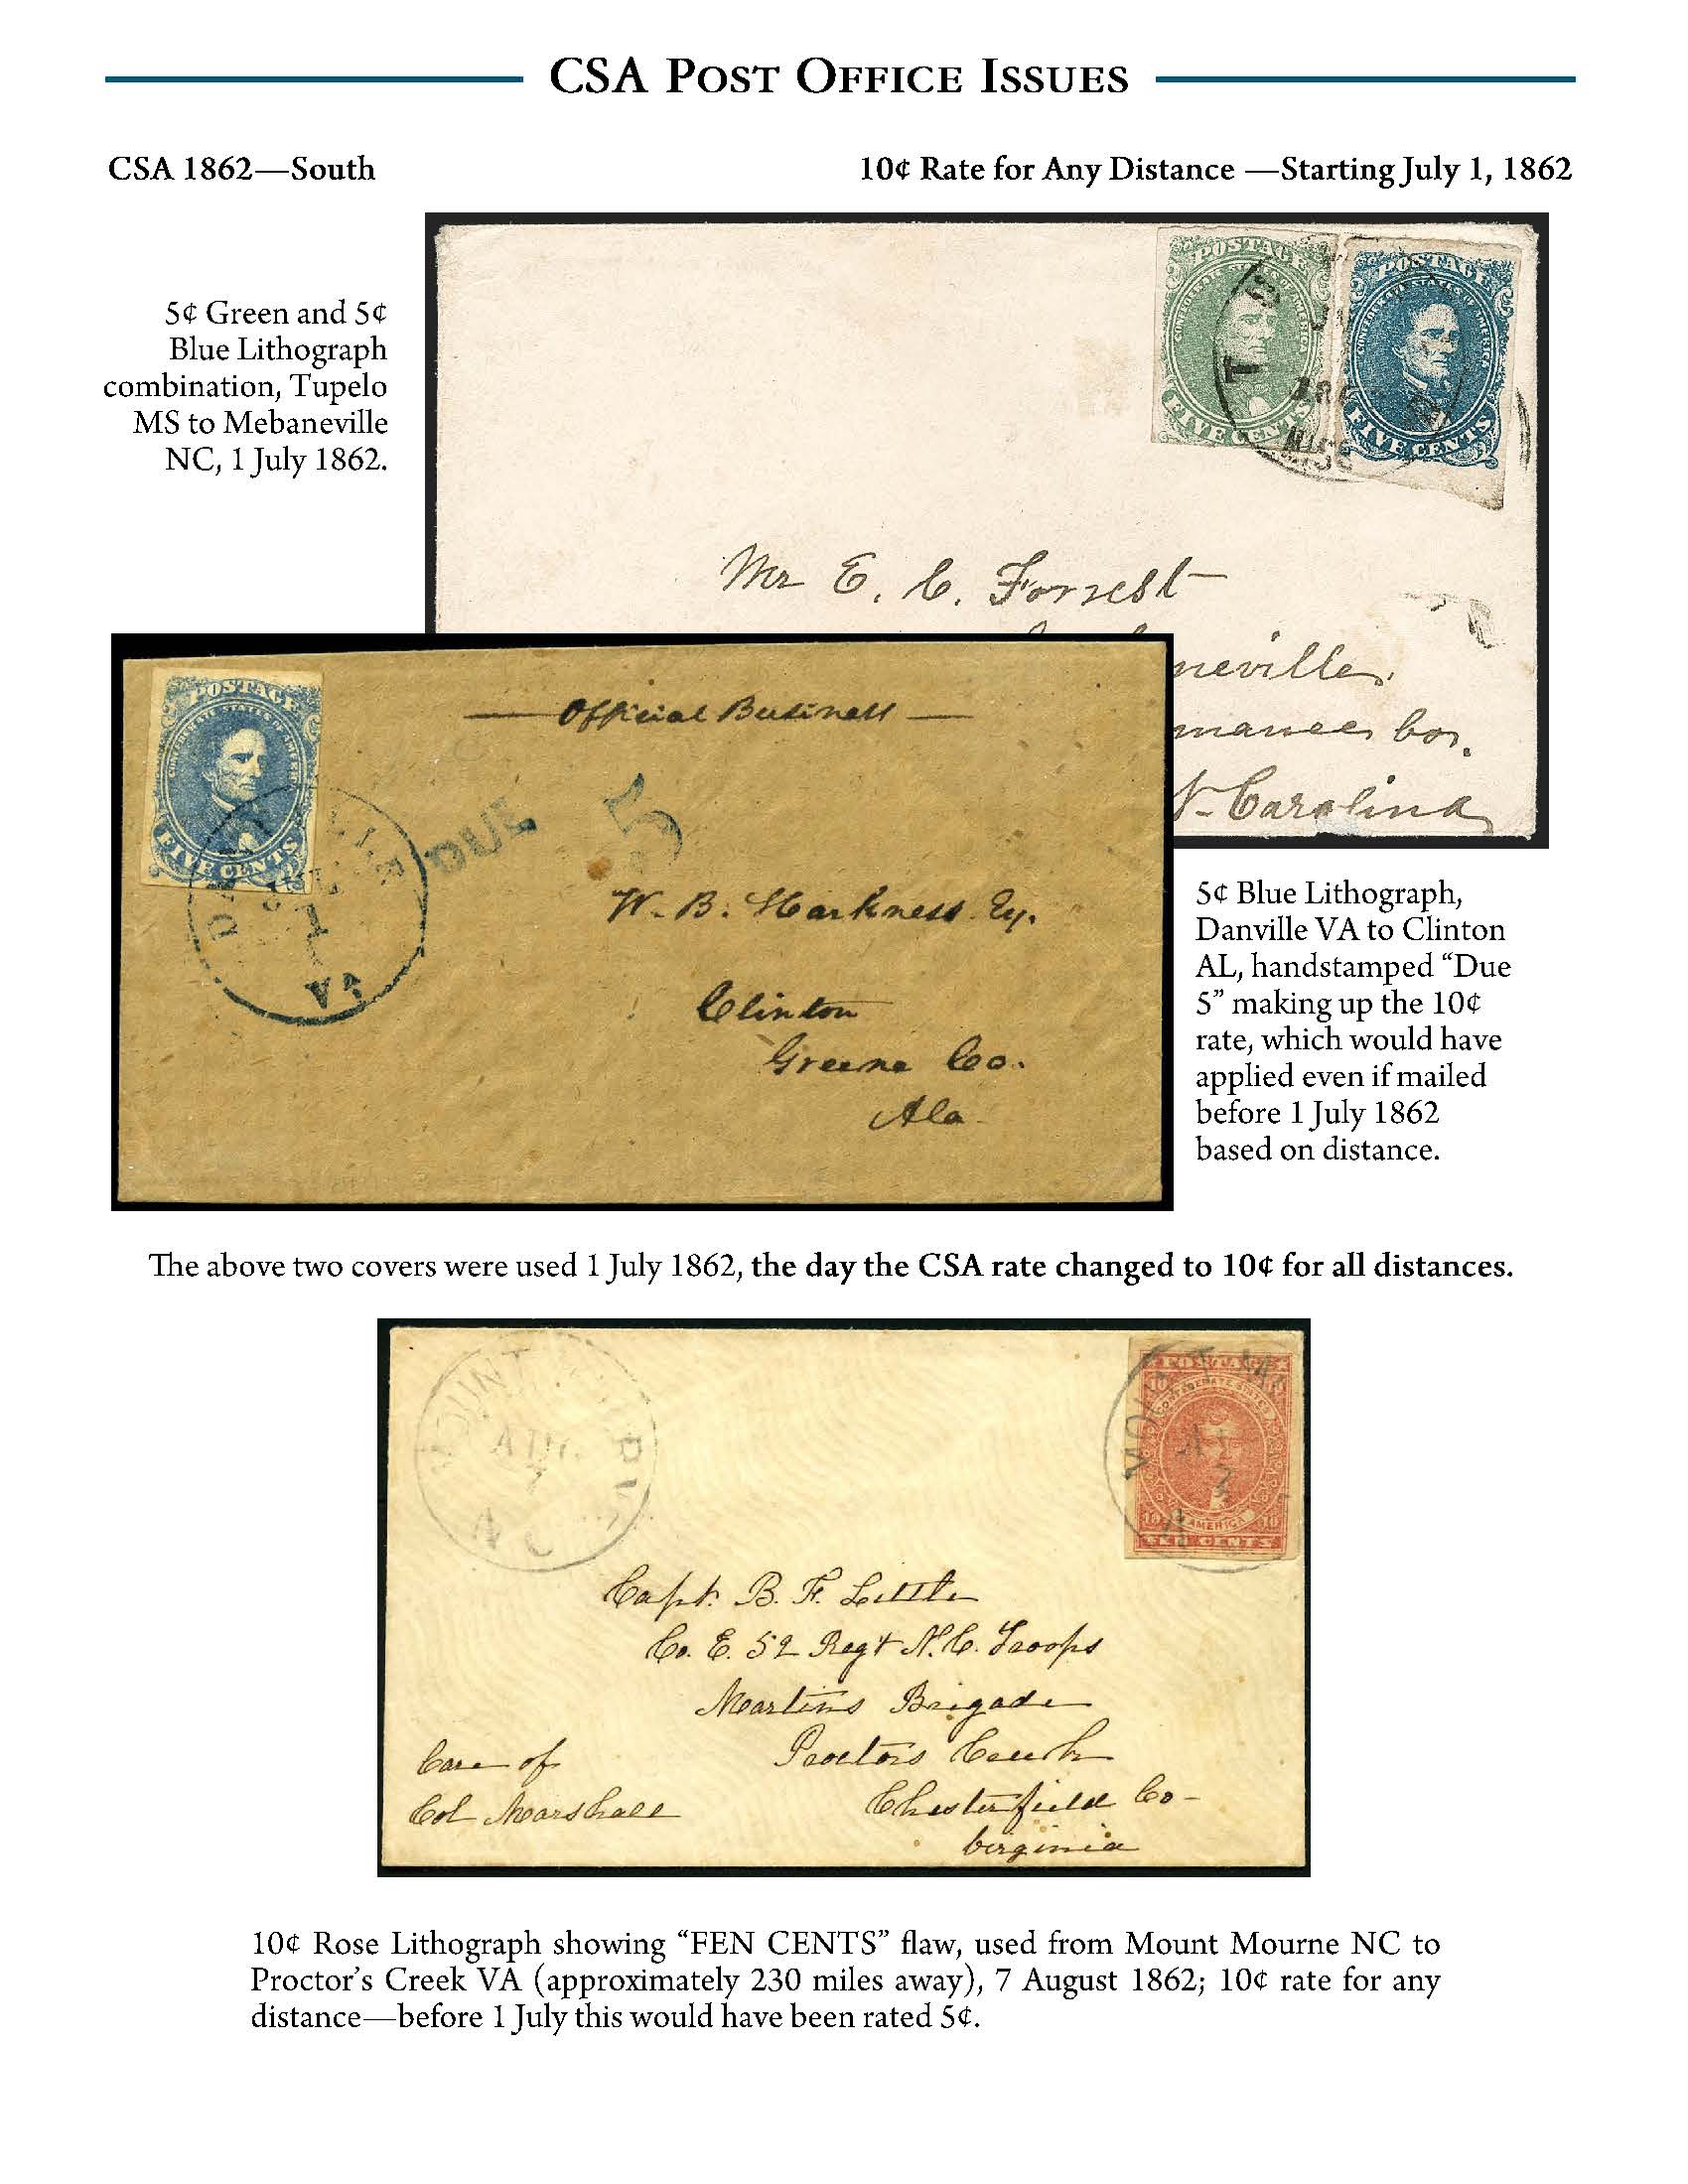 CSA POST OFFICE ISSUES
CSA 1862—South
10¢ Rate for Any Distance —Starting July 1, 1862
5¢ Green and 5¢
Blue Lithograph
combination, Tupelo
MS to Mebaneville
NC, 1 July 1862.
POSTAGE
CONFEDERATE STATES OF AMERICA
FIVE CENTS
POSTAGE
CONFEDERATE STATES OF AMERICA
FIVE CENTS
MISS
Mr E. C. Forrest
neville
manee Co.
N. Carolina
POSTAGE
CONFEDERATE STATES OF AMERICA
FIVE CENTS
— Official Business —
DUE 5
1
VA
W. B. Harkness Esq.
Clinton
Greene Co.
Ala
5¢ Blue Lithograph,
Danville VA to Clinton
AL, handstamped “Due
5” making up the 10¢
rate, which would have
applied even if mailed
before 1 July 1862
based on distance.
The above two covers were used 1 July 1862, the day the CSA rate changed to 10¢ for all distances.
MOUNT
AUG
7
N C
POSTAGE
CONFEDERATE STATES
AMERICA
10 10
CENTS
Capt. B. F. Little
Co. E. 52 Regt N. C. Troops
Martins Brigade
Proctors Creek
Chesterfield Co-
Virginia
Care of
Col Marshall
10¢ Rose Lithograph showing “FEN CENTS” flaw, used from Mount Mourne NC to
Proctor’s Creek VA (approximately 230 miles away), 7 August 1862; 10¢ rate for any
distance—before 1 July this would have been rated 5¢.